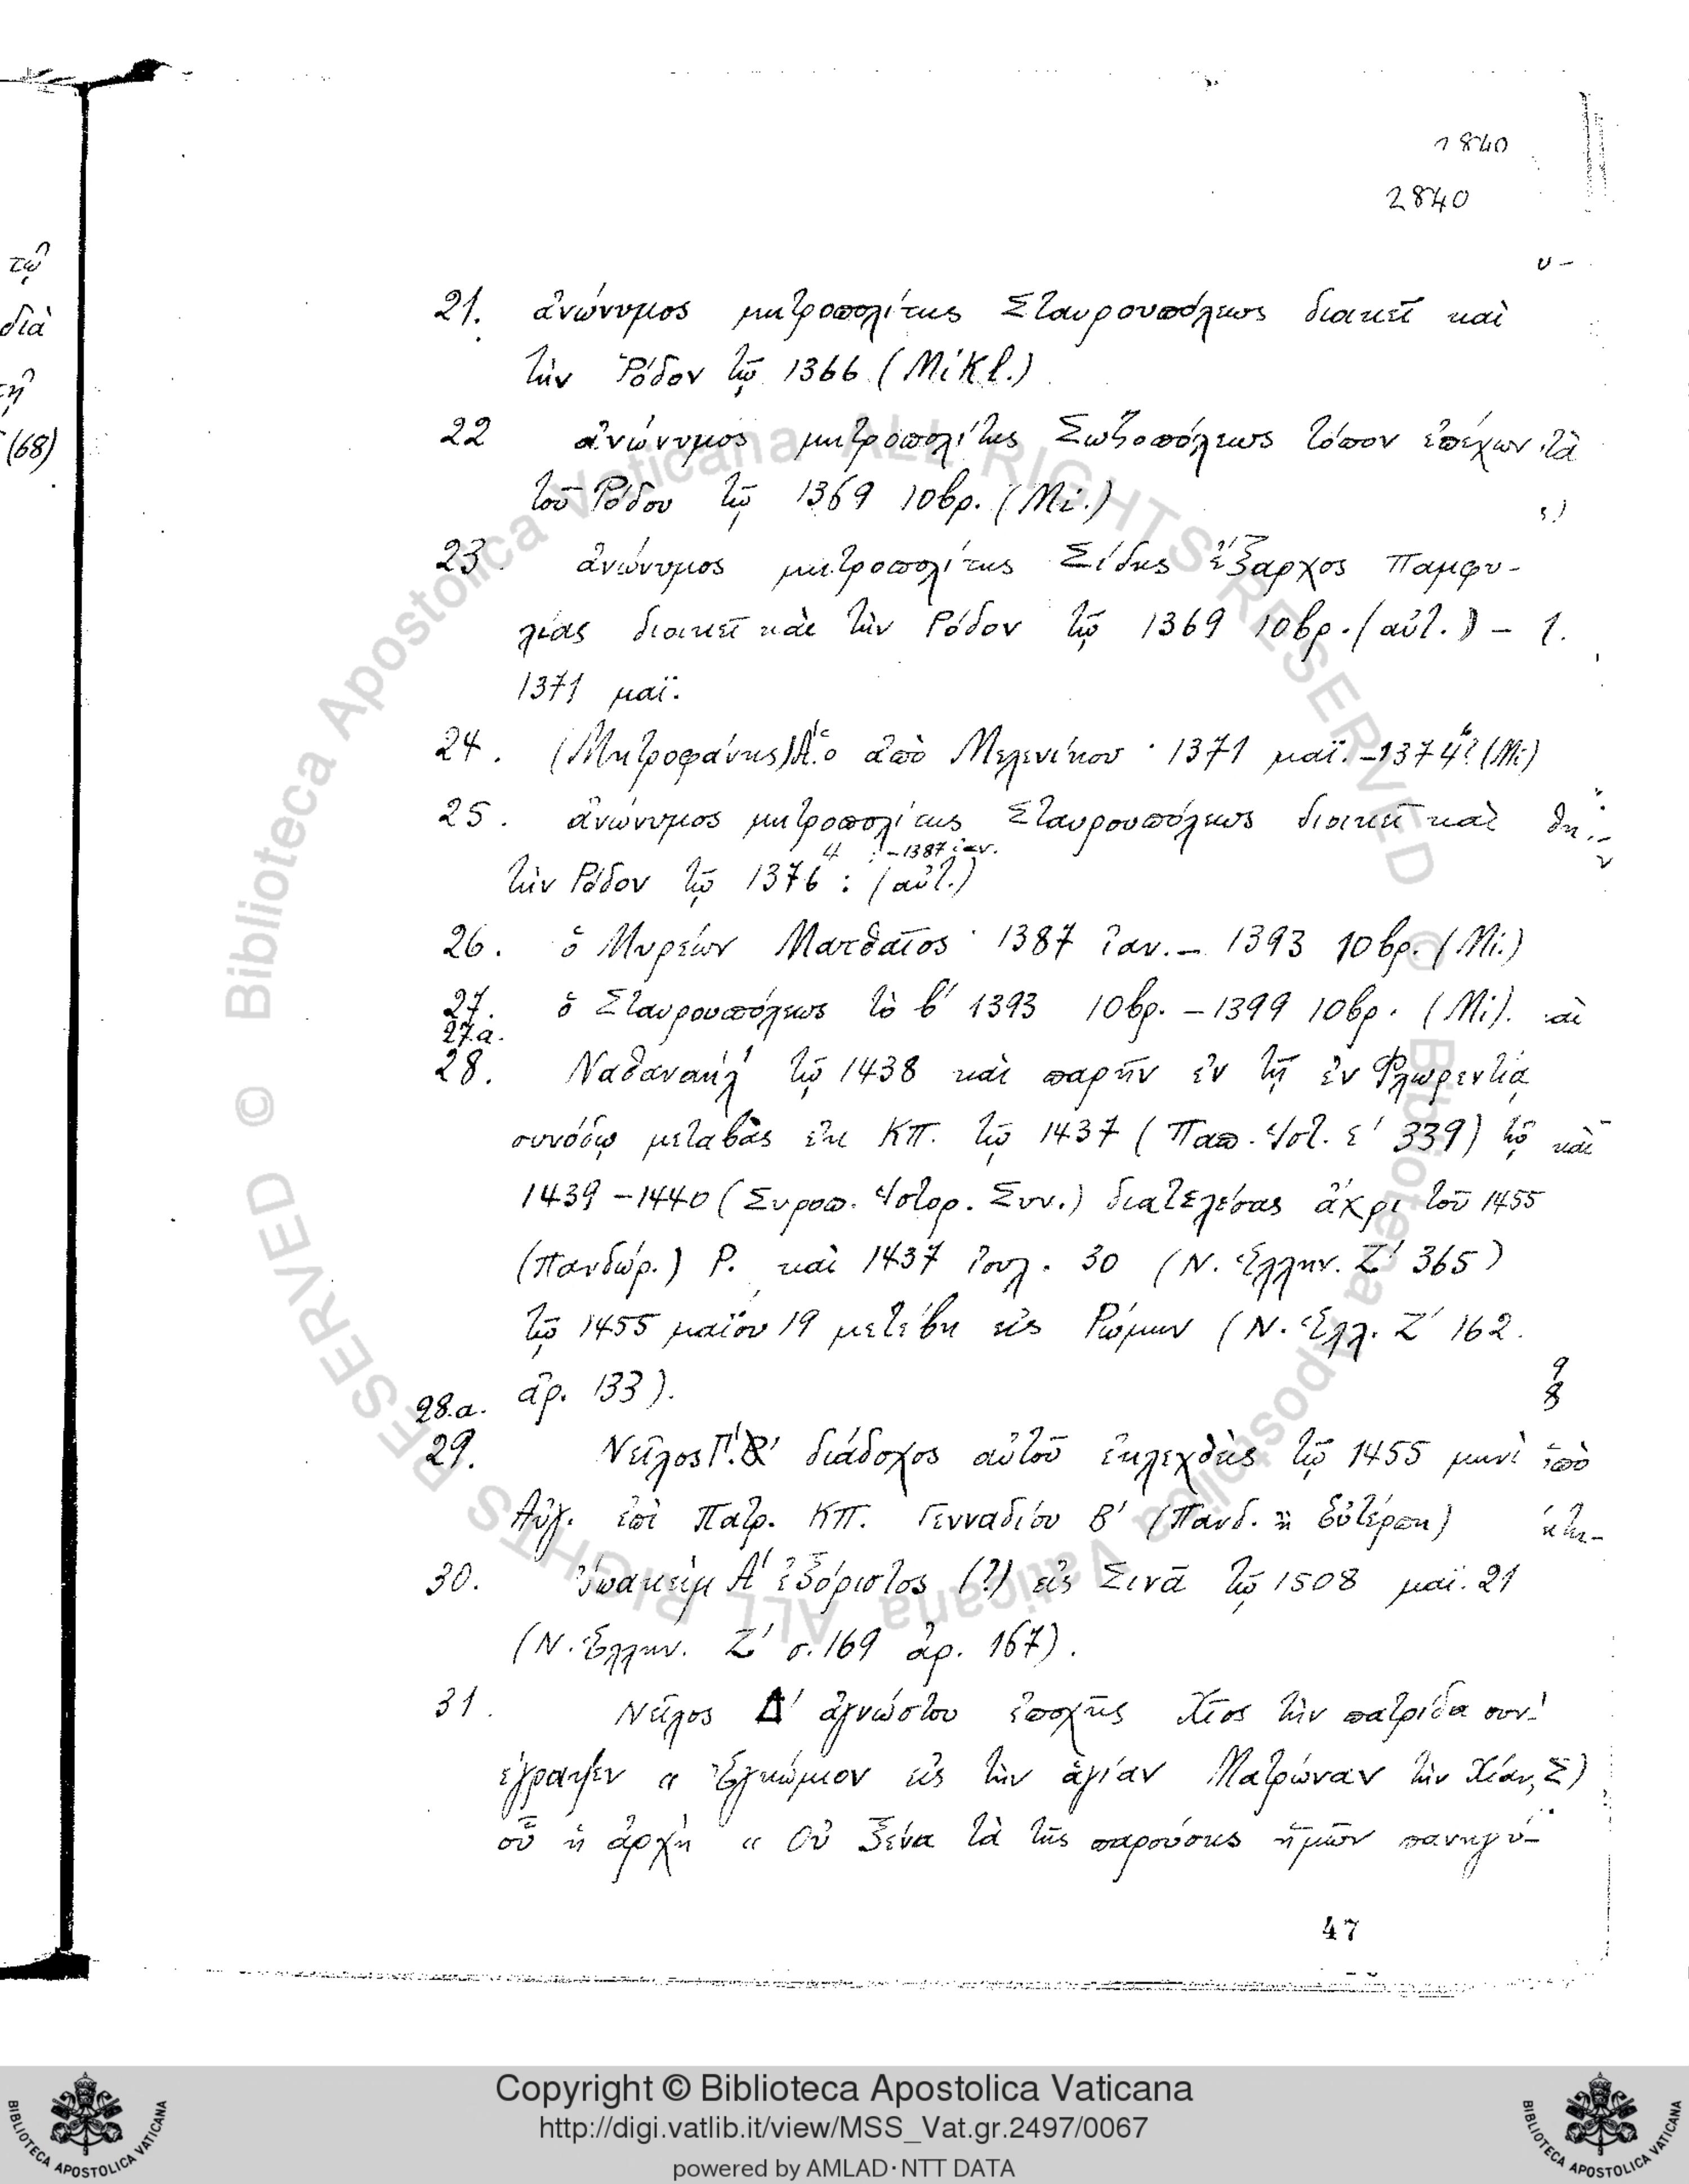 1840
2840
τῷ
διὰ
τῇ
(68)
υ-
21. ἀνώνυμος μητροπολίτης Σταυρουπόλεως διοικεῖ καὶ
τὴν Ῥόδον τῷ 1366 (Mikl.)
22 ἀνώνυμος μητροπολίτης Σωζοπόλεως τόπον ἐπέχων τὰ
τοῦ Ῥόδου τῷ 1369 10βρ. (Mi.)
23. ἀνώνυμος μητροπολίτης Σίδης ἔξαρχος Παμφυ-
λίας διοικεῖ καὶ τὴν Ῥόδον τῷ 1369 10βρ. (αὐτ.) - 1.
1371 μαΐ.
24. (Μητροφάνης) Α' ὁ ἀπὸ Μελενίκου · 1371 μαΐ. - 1374? (Mi)
25. ἀνώνυμος μητροπολίτης Σταυρουπόλεως διοικεῖ καὶ
4 :-1387 ἰαν.
τὴν Ῥόδον τῷ 1376 : (αὐτ.)
26. ὁ Μυρέων Ματθαῖος · 1387 ἰαν. - 1393 10βρ. (Mi.)
27. ὁ Σταυρουπόλεως τὸ β' 1393 10βρ. - 1399 10βρ. (Mi).
27.α.
28. Ναθαναήλ τῷ 1438 καὶ παρῆν ἐν τῇ ἐν Φλωρεντίᾳ
συνόδῳ μεταβὰς ἐκ ΚΠ. τῷ 1437 (Παπ. Ἱστ. ε' 339) τῷ καὶ
1439 - 1440 (Συροπ. Ἱστορ. Συν.) διατελέσας ἄχρι τοῦ 1455
(Πανδώρ.) Ρ. καὶ 1437 ἰουλ. 30 (Ν. Ἑλλην. Ζ' 365)
τῷ 1455 μαΐου 19 μετέβη εἰς Ῥώμην (Ν. Ἑλλ. Ζ' 162.
ἀρ. 133).
28.α.
29. Νεῖλος Γ'. διάδοχος αὐτοῦ ἐκλεχθεὶς τῷ 1455 μηνὶ
Αὐγ. ἐπὶ Πατρ. ΚΠ. Γενναδίου Β' (Πανδ. ἢ Εὐτέρπη)
30. Ἰωακεὶμ Α' ἐξόριστος (?) εἰς Σινᾶ τῷ 1508 μαΐ. 21
(Ν. Ἑλλην. Ζ' σ. 169 ἀρ. 167).
31. Νεῖλος Δ' ἀγνώστου ἐποχῆς Χῖος τὴν πατρίδα συν-
έγραψεν « Ἐγκώμιον εἰς τὴν ἁγίαν Ματρώναν τὴν Χίαν,
οὗ ἡ ἀρχὴ « Οὐ ξένα τὰ τῆς παρούσης ἡμῶν πανηγύ-
47
© Biblioteca Apostolica Vaticana ALL RIGHTS RESERVED © Biblioteca Apostolica Vaticana ALL RIGHTS RESERVED
Copyright © Biblioteca Apostolica Vaticana
http://digi.vatlib.it/view/MSS_Vat.gr.2497/0067
powered by AMLAD·NTT DATA
BIBLIOTECA APOSTOLICA VATICANA
BIBLIOTECA APOSTOLICA VATICANA